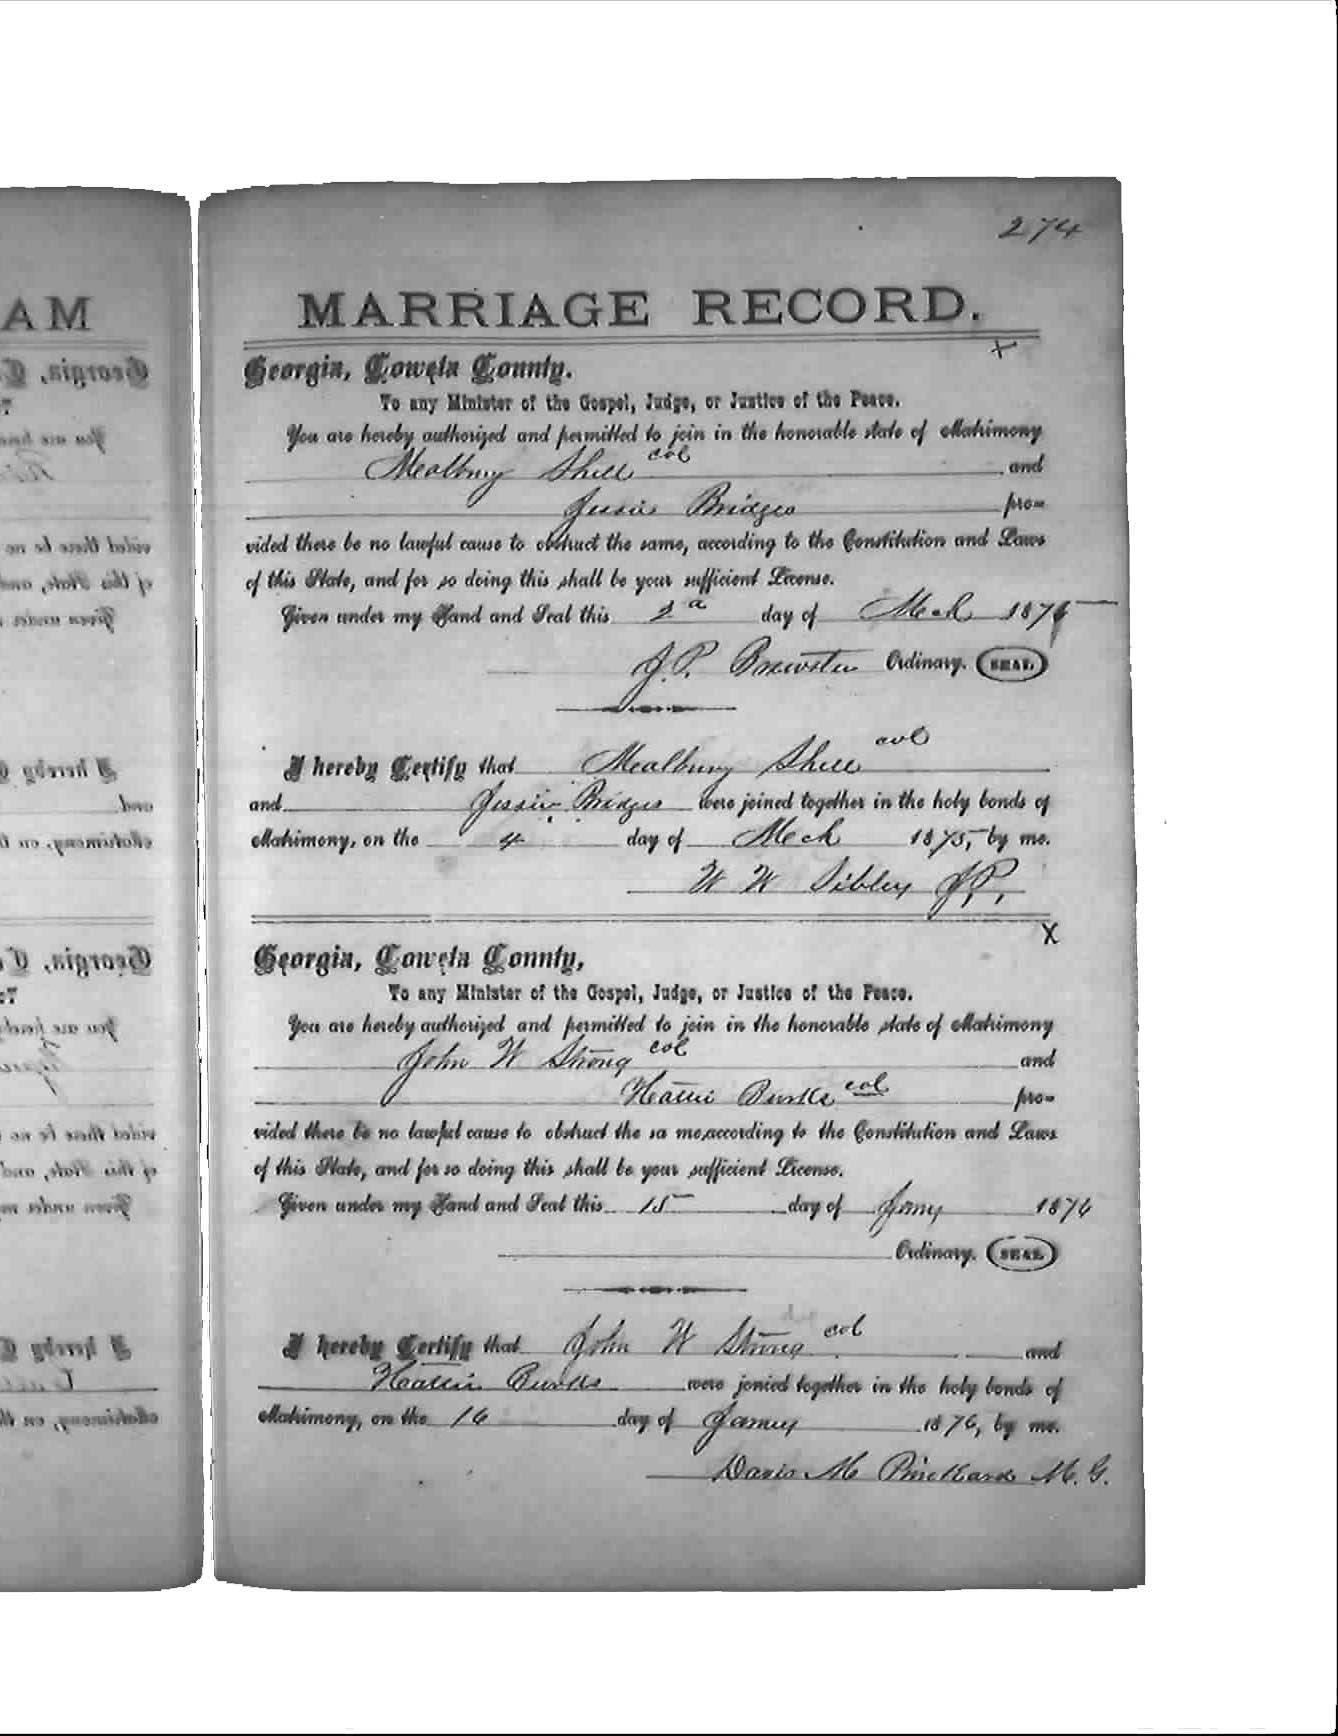 274
MARRIAGE RECORD.
x
Georgia, Coweta County.
To any Minister of the Gospel, Judge, or Justice of the Peace.
You are hereby authorized and permitted to join in the honorable state of Matrimony
Mealbury Shell col and
Jessie Bridges pro=
vided there be no lawful cause to obstruct the same, according to the Constitution and Laws
of this State, and for so doing this shall be your sufficient License.
Given under my Hand and Seal this 2d day of Mch 1875
J. P. Brewster Ordinary. SEAL.
I hereby Certify that Mealbury Shell col
and Jessie Bridges were joined together in the holy bonds of
Matrimony, on the 4 day of Mch 1875, by me.
W W Sibley J.P.
x
Georgia, Coweta County,
To any Minister of the Gospel, Judge, or Justice of the Peace.
You are hereby authorized and permitted to join in the honorable state of Matrimony
John W Strong col and
Hattie Burks col pro=
vided there be no lawful cause to obstruct the sa me,according to the Constitution and Laws
of this State, and for so doing this shall be your sufficient License.
Given under my Hand and Seal this 15 day of Jany 1876
Ordinary. SEAL
I hereby Certify that John W Strong col and
Hattie Burks were jonied together in the holy bonds of
Matrimony, on the 16 day of Jany 1876, by me.
M M. G.